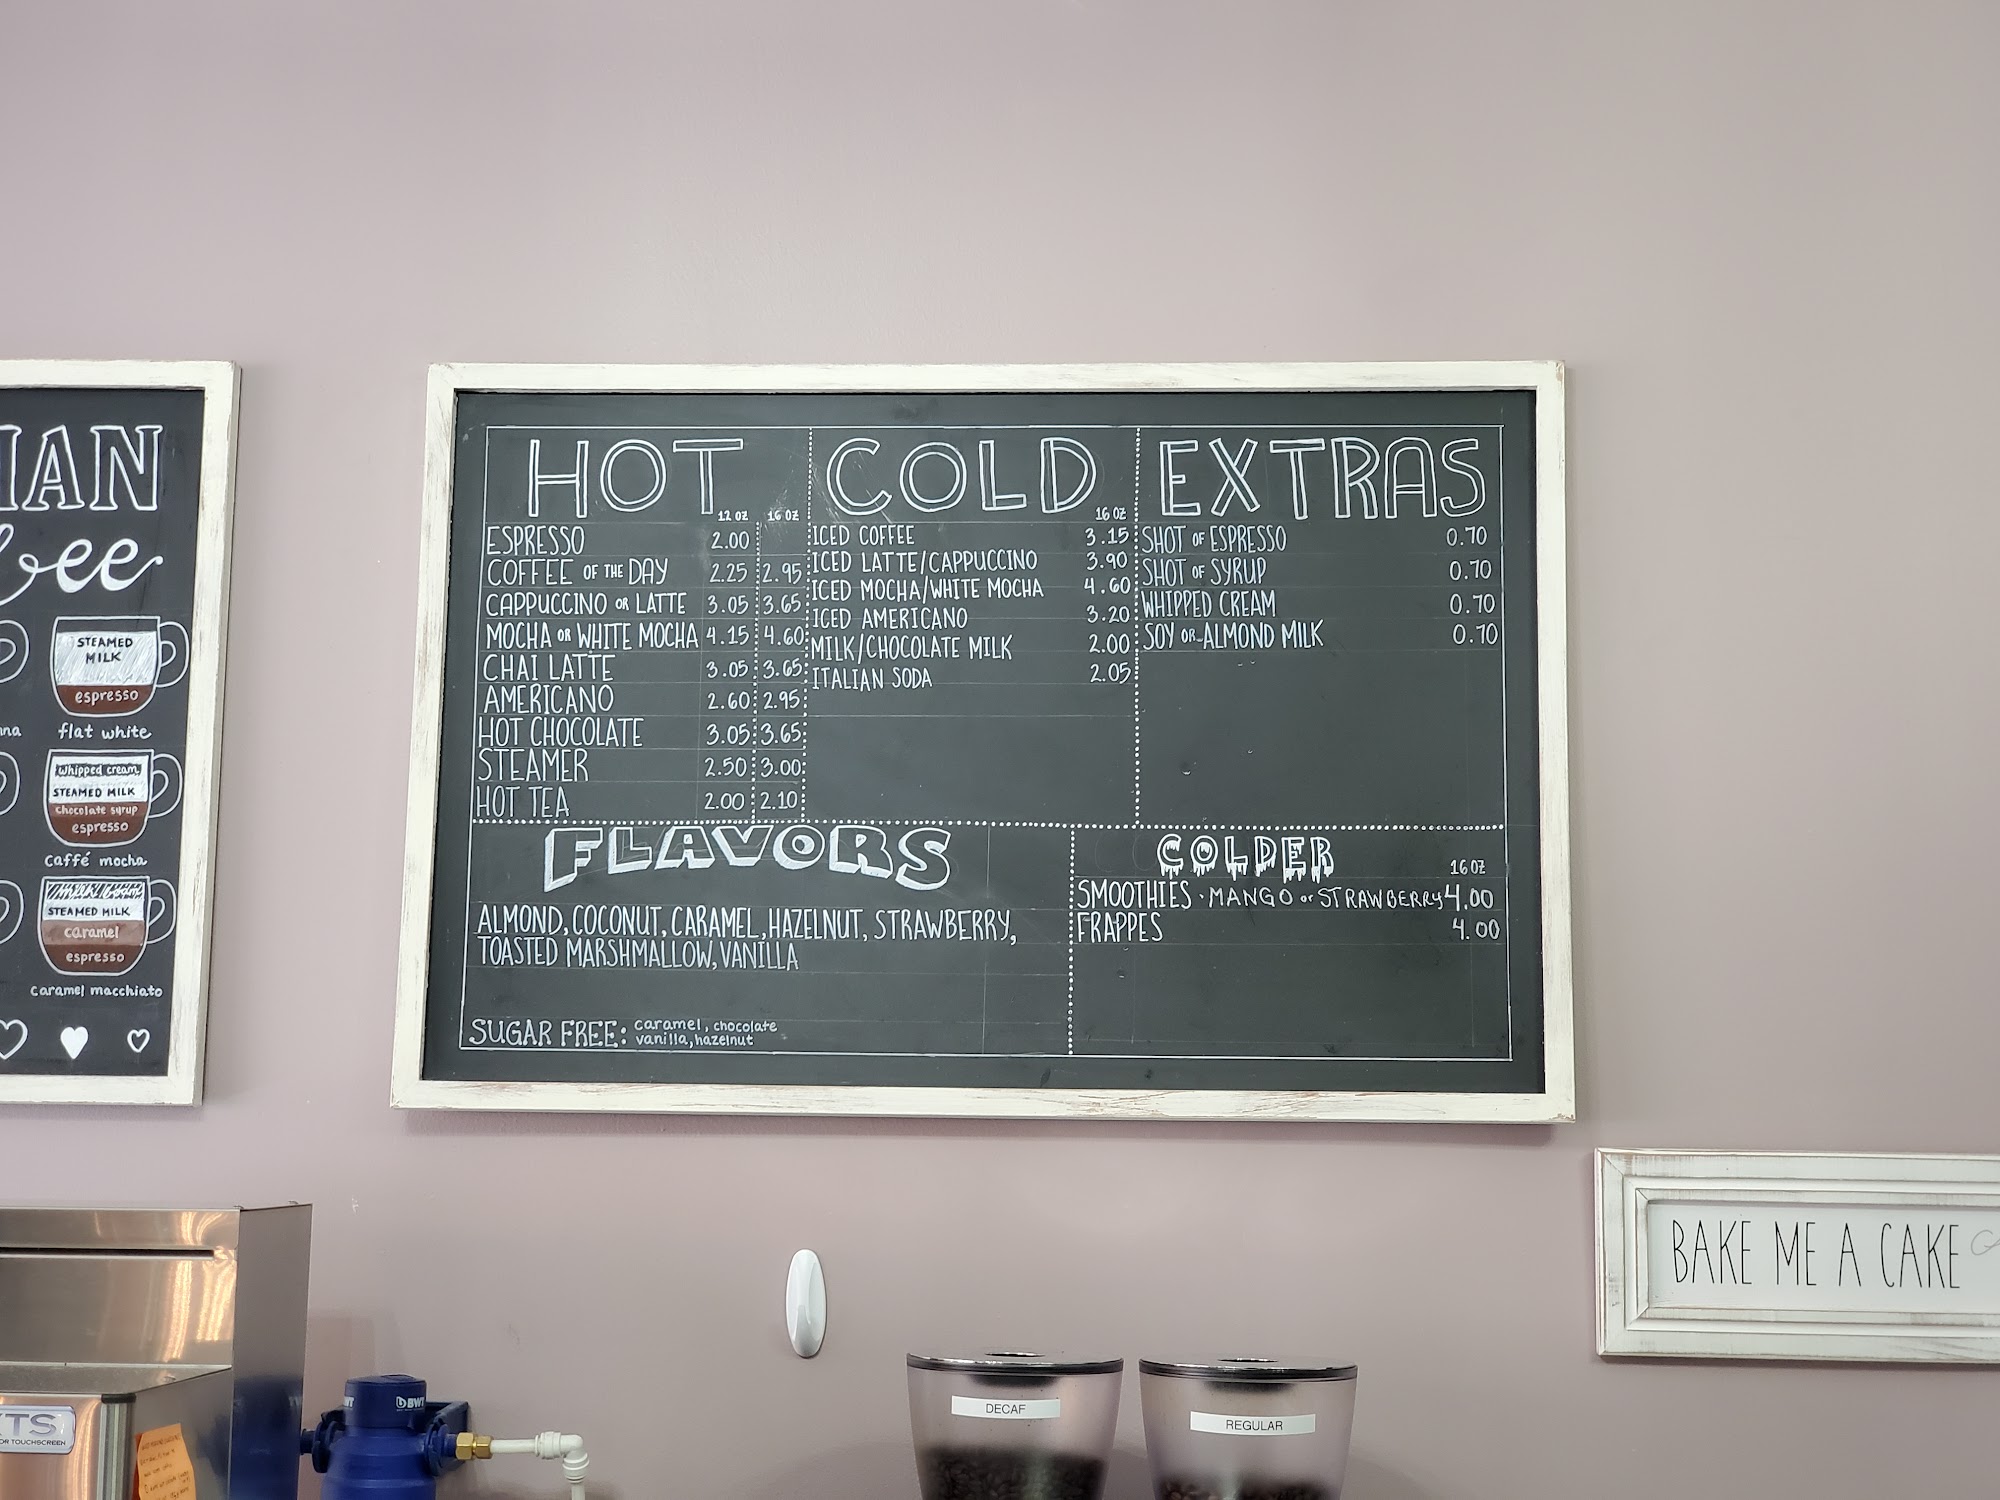 IAN
ee
STEAMED
MILK
espresso
flat white
whipped cream
STEAMED MILK
chocolate syrup
espresso
Caffé mocha
STEAMED MILK
caramel
espresso
Caramel macchiato
HOT
12 OZ 16 OZ
ESPRESSO 2.00
COFFEE OF THE DAY 2.25 2.95
CAPPUCCINO OR LATTE 3.05 3.65
MOCHA OR WHITE MOCHA 4.15 4.60
CHAI LATTE 3.05 3.65
AMERICANO 2.60 2.95
HOT CHOCOLATE 3.05 3.65
STEAMER 2.50 3.00
HOT TEA 2.00 2.10
COLD
16 OZ
ICED COFFEE 3.15
ICED LATTE/CAPPUCCINO 3.90
ICED MOCHA/WHITE MOCHA 4.60
ICED AMERICANO 3.20
MILK/CHOCOLATE MILK 2.00
ITALIAN SODA 2.05
EXTRAS
SHOT OF ESPRESSO 0.70
SHOT OF SYRUP 0.70
WHIPPED CREAM 0.70
SOY OR ALMOND MILK 0.70
FLAVORS
ALMOND, COCONUT, CARAMEL, HAZELNUT, STRAWBERRY,
TOASTED MARSHMALLOW, VANILLA
SUGAR FREE: caramel, chocolate
vanilla, hazelnut
COLDER
16 OZ
SMOOTHIES · MANGO or STRAWBERRY 4.00
FRAPPES 4.00
BAKE ME A CAKE
DECAF
REGULAR
XTS
OR TOUCHSCREEN
BWT